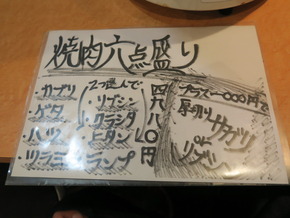 焼肉六点盛り
・カブリ
・ゲタ
・ハツ
・ツラミ
2つ選んで
・リブシン
・クラシタ
・ヒタン
・ランプ
四六八〇円
プラス一〇〇〇円で
厚切りサガリ
or
リブシン